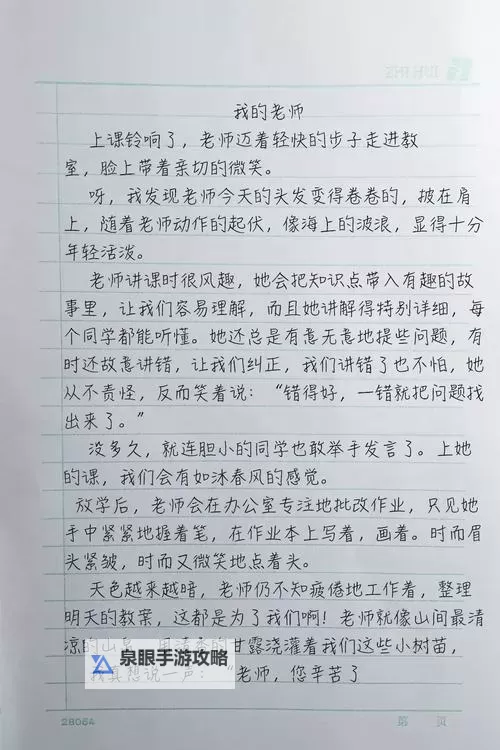 我的老师
上课铃响了，老师迈着轻快的步子走进教
室，脸上带着亲切的微笑。
呀，我发现老师今天的头发变得卷卷的，披在肩
上，随着老师动作的起伏，像海上的波浪，显得十分
年轻活泼。
老师讲课时很风趣，她会把知识点带入有趣的故
事里，让我们容易理解，而且她讲解得特别详细，每
个同学都能听懂。她还总是有意无意地提些问题，有
时还故意讲错，让我们纠正，我们讲错了也不怕，她
从不责怪，反而笑着说：“错得好，一错就把问题找
出来了。”
没多久，就连胆小的同学也敢举手发言了。上她
的课，我们会有如沐春风的感觉。
放学后，老师会在办公室专注地批改作业，只见她
手中紧紧地握着笔，在作业本上写着，画着。时而眉
头紧皱，时而又微笑地点着头。
天色越来越暗，老师仍不知疲倦地工作着，整理
明天的教案，这都是为了我们啊！老师就像山间最清
凉的山泉，用清香的甘露浇灌着我们这些小树苗，
我真想说一声：“老师，您辛苦了
泉眼手游攻略
28064
第 页